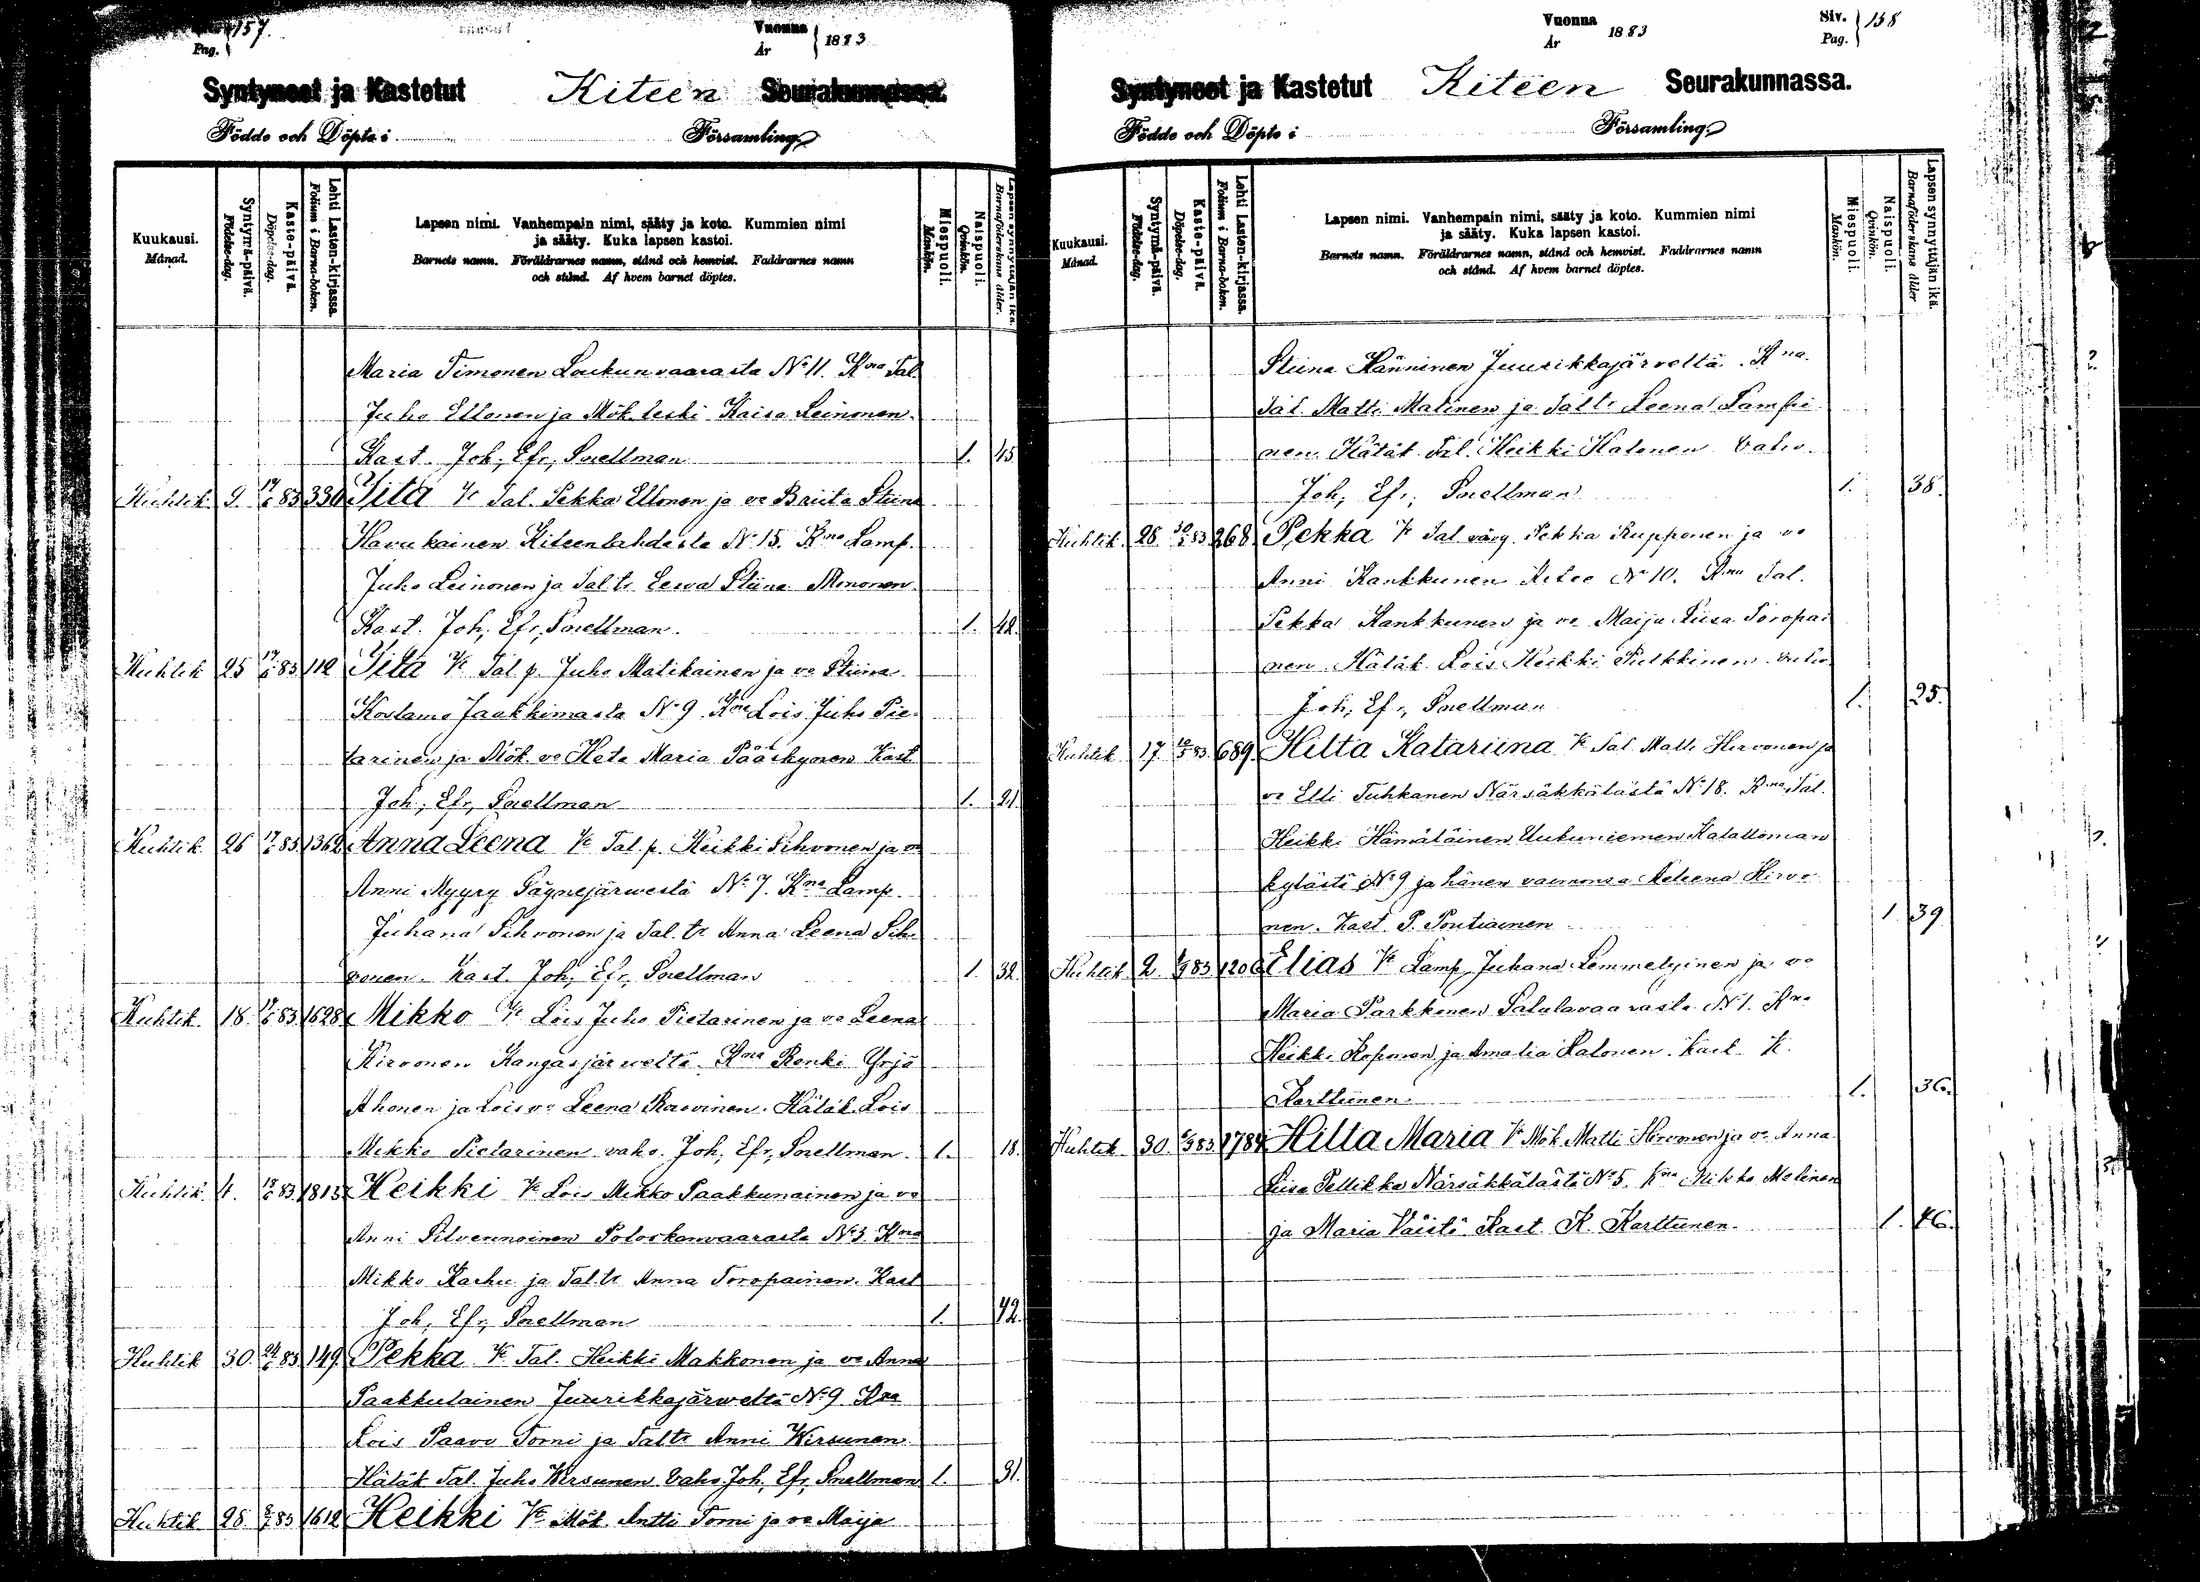 157.
Pag.
Vuonna
År
1883
Syntyneet ja Kastetut Kiteen Seurakunnassa.
Födde och Döpte i Församling
Kuukausi.
Månad.
Syntymä-päivä.
Födelse-dag.
Kaste-päivä.
Döpelse-dag.
Lehti Lasten-kirjassa.
Folium i Barna-boken.
Lapsen nimi. Vanhempain nimi, sääty ja koto. Kummien nimi
ja sääty. Kuka lapsen kastoi.
Barnets namn. Föräldrarnes namn, stånd och hemvist. Faddrarnes namn
och stånd. Af hvem barnet döptes.
Miespuoli.
Mankön.
Naispuoli.
Qvinkön.
Lapsen synnyttäjän ikä.
Barnaföderskans ålder.
Maria Timonen Loukunvaarasta No 11. Kna Tal.
Juho Ellonen ja Mök. leski Kaisa Leinonen.
Kast. Joh; Efr; Snellman 1. 45
Huhtik. 9. 17/6 83 330 Iita Vt Tal. Pekka Ellonen ja vo Briita Stiina
Havukainen Kiteenlahdesta No 15. Kna Lamp.
Juho Leinonen ja Tal tr Eewa Stiina Mononen
Kast. Joh; Efr; Snellman. 1. 42.
Huhtik 25 17/6 83 112 Iita Vt Tal p. Juho Matikainen ja vo Stiina
Kostamo Jaakkimasta No 9. Kna Lois Juho Pie-
tarinen ja Mök. vo Heta Maria Pääskynen Kast
Joh; Efr; Snellman 1. 21.
Huhtik. 26 17/6 83. 1362 Anna Leena Vt Tal. p. Heikki Sihvonen ja vo
Anni Myyry Päynejärwestä No 7. Kna Lamp.
Juhana Sihvonen ja Tal. tr Anna Leena Sih-
vonen. Kast. Joh; Efr; Snellman 1. 32.
Huhtik. 18. 17/6 83. 1628 Mikko Vt Lois Juho Pietarinen ja vo Leena
Hirvonen Kangasjärweltä. Kna Renki Yrjö
Ahonen ja Lois vo Leena Raevinen. Hätäk. Lois
Mikko Pietarinen vahv. Joh; Efr; Snellman. 1. 18.
Huhtik. 4. 18/6 83 1815 Heikki Vt Lois Mikko Paakkunainen ja vo
Anni Silvennoinen Poloskanvaarasta No 3. Kna
Mikko Karhu ja Tal. tr Anna Toropainen. Kast
Joh; Efr; Snellman 1. 42.
Huhtik 30. 24/6 83 149. Pekka Vt Tal. Heikki Makkonen ja vo Anna
Paakkulainen Juurikkajärweltä No 9 Kna
Lois Paavo Torni ja Tal tr Anni Hirsunen
Hätäk Tal. Juho Hirsunen. Vahv. Joh; Efr; Snellman 1. 31.
Huhtik. 28. 83 1612 Heikki Vt Mök. Antti Torni ja vo Maija
Vuonna
År
1883
Siv.
Pag.
158
Syntyneet ja Kastetut Kiteen Seurakunnassa.
Födde och Döpte i Församling
Kuukausi.
Månad.
Syntymä-päivä.
Födelse-dag.
Kaste-päivä.
Döpelse-dag.
Lehti Lasten-kirjassa.
Folium i Barna-boken.
Lapsen nimi. Vanhempain nimi, sääty ja koto. Kummien nimi
ja sääty. Kuka lapsen kastoi.
Barnets namn. Föräldrarnes namn, stånd och hemvist. Faddrarnes namn
och stånd. Af hvem barnet döptes.
Miespuoli.
Mankön.
Naispuoli.
Qvinkön.
Lapsen synnyttäjän ikä.
Barnaföderskans ålder
Stiina Hänninen Juurikkajärveltä. Kna.
Tal. Matti Matinen ja Tal tr Leena Lampi-
nen. Hätäk. Tal. Heikki Hatonen Vahv.
Joh; Efr; Snellman 1. 38.
Huhtik. 28. 30/6 83 268 Pekka Vt Tal. väv. Pekka Rupponen ja vo
Anni Kankkunen Kitee No 10. Kna Tal.
Pekka Kankkunen ja vo Maija Liisa Toropai
nen. Hätäk. Lois Heikki Pulkkinen. Vahv
Joh; Efr; Snellman 1. 25.
Huhtik 17. 83. 689. Hilta Katariina Vt Tal. Matti Hirvonen ja
vo Elli Tuhkanen Närsäkkälästä No 18. Kna Tal.
Heikki Hämäläinen Uukuniemen Kalattoman
kylästä No 9 ja hänen vaimonsa Heleena Hirvo-
nen. Kast. P. Pontiainen 1. 39
Huhtik 2. 83 1206 Elias Vt Lamp. Juhana Lemmetyinen ja vo
Maria Parkkonen Satulavaarasta No 1. Kna
Heikki Koponen ja Amalia Halonen. Kast. K.
Karttunen. 1. 36.
Huhtik. 30. 83. 1784 Hilta Maria Vt Mök. Matti Hirvonen ja vo Anna
Liisa Pellikka Närsäkkälästä No 5. Kna Mikko Malinen
ja Maria Väistö. Kast. K. Karttunen. 1. 46.